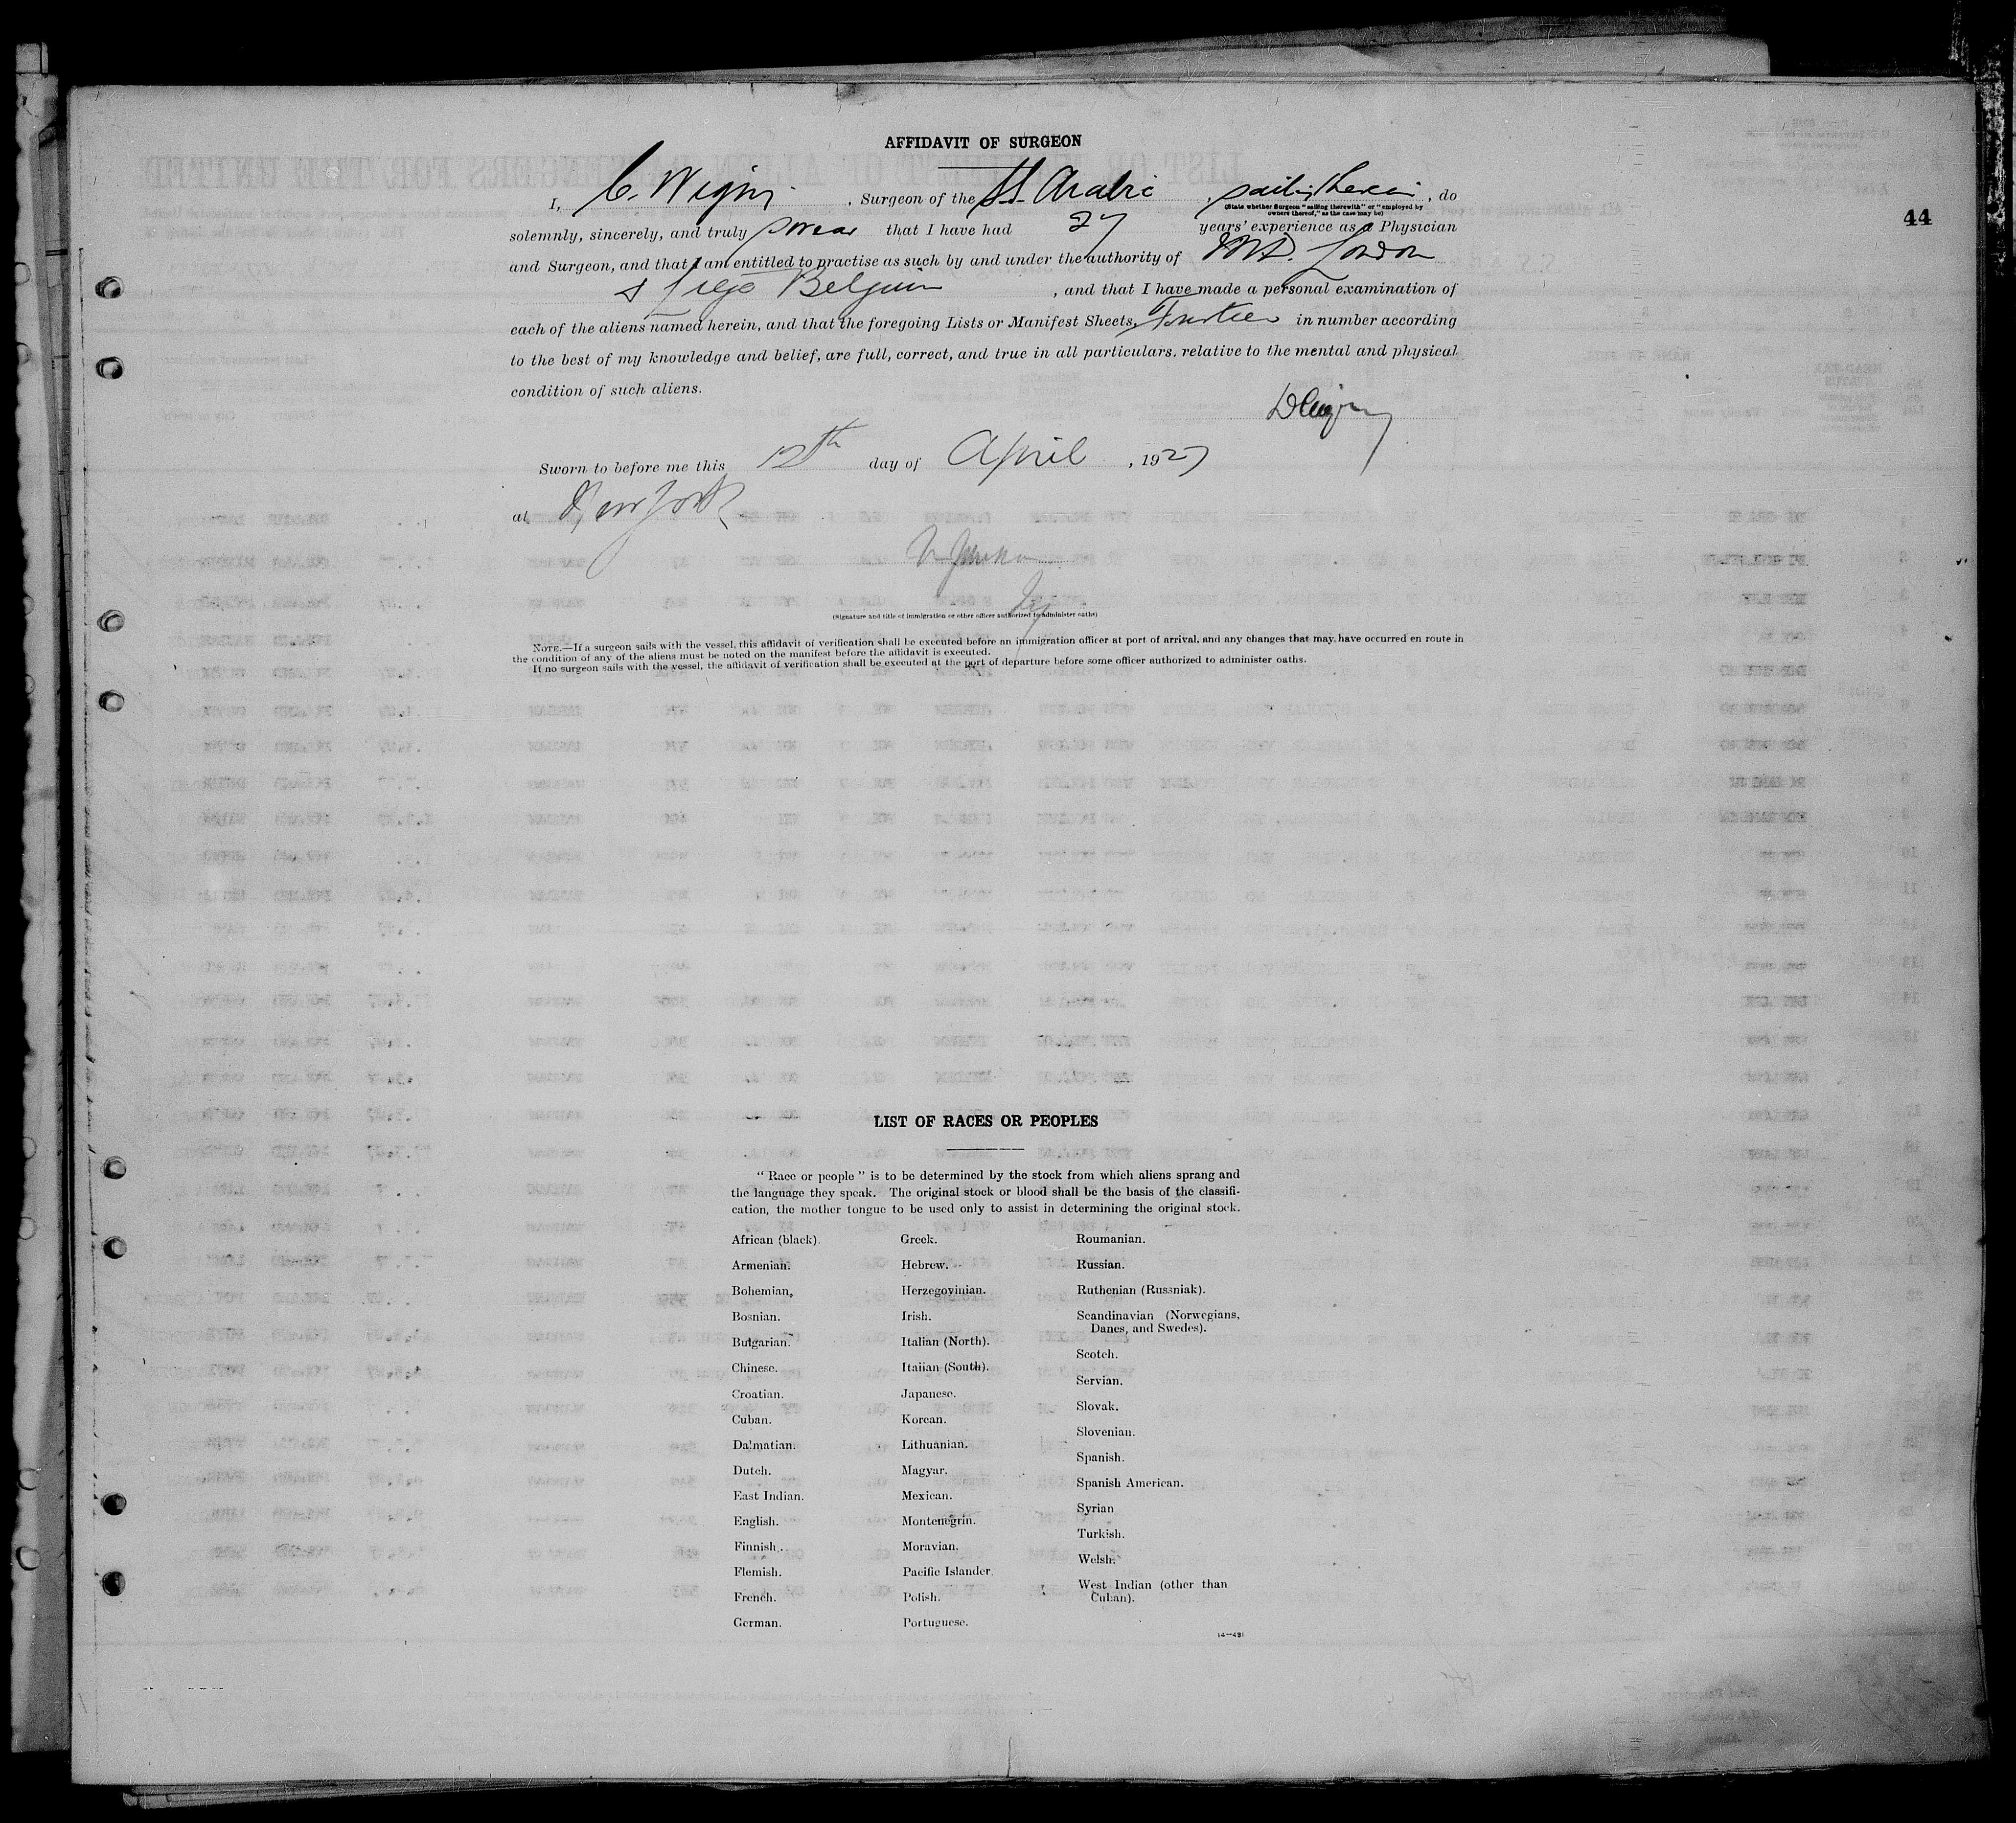 AFFIDAVIT OF SURGEON
I, C. , Surgeon of the SS. Arabic , sailing therein , do
(State whether Surgeon "sailing therewith" or "employed by
owners thereof," as the case may be)
44
solemnly, sincerely, and truly swear that I have had 27 years' experience as a Physician
and Surgeon, and that I am entitled to practise as such by and under the authority of M.D. London
& Liege Belgium , and that I have made a personal examination of
each of the aliens named herein, and that the foregoing Lists or Manifest Sheets, in number according
to the best of my knowledge and belief, are full, correct, and true in all particulars, relative to the mental and physical
condition of such aliens.
Sworn to before me this 12th day of April , 1927
at New York
(Signature and title of immigration or other officer authorized to administer oaths)
NOTE.—If a surgeon sails with the vessel, this affidavit of verification shall be executed before an immigration officer at port of arrival, and any changes that may have occurred en route in
the condition of any of the aliens must be noted on the manifest before the affidavit is executed.
If no surgeon sails with the vessel, the affidavit of verification shall be executed at the port of departure before some officer authorized to administer oaths.
LIST OF RACES OR PEOPLES
"Race or people" is to be determined by the stock from which aliens sprang and
the language they speak. The original stock or blood shall be the basis of the classifi-
cation, the mother tongue to be used only to assist in determining the original stock.
African (black).
Armenian.
Bohemian.
Bosnian.
Bulgarian.
Chinese.
Croatian.
Cuban.
Dalmatian.
Dutch.
East Indian.
English.
Finnish.
Flemish.
French.
German.
Greek.
Hebrew.
Herzegovinian.
Irish.
Italian (North).
Italian (South).
Japanese.
Korean.
Lithuanian.
Magyar.
Mexican.
Montenegrin.
Moravian.
Pacific Islander.
Polish.
Portuguese.
Roumanian.
Russian.
Ruthenian (Russniak).
Scandinavian (Norwegians,
Danes, and Swedes).
Scotch.
Servian.
Slovak.
Slovenian.
Spanish.
Spanish American.
Syrian
Turkish.
Welsh.
West Indian (other than
Cuban).
14—431